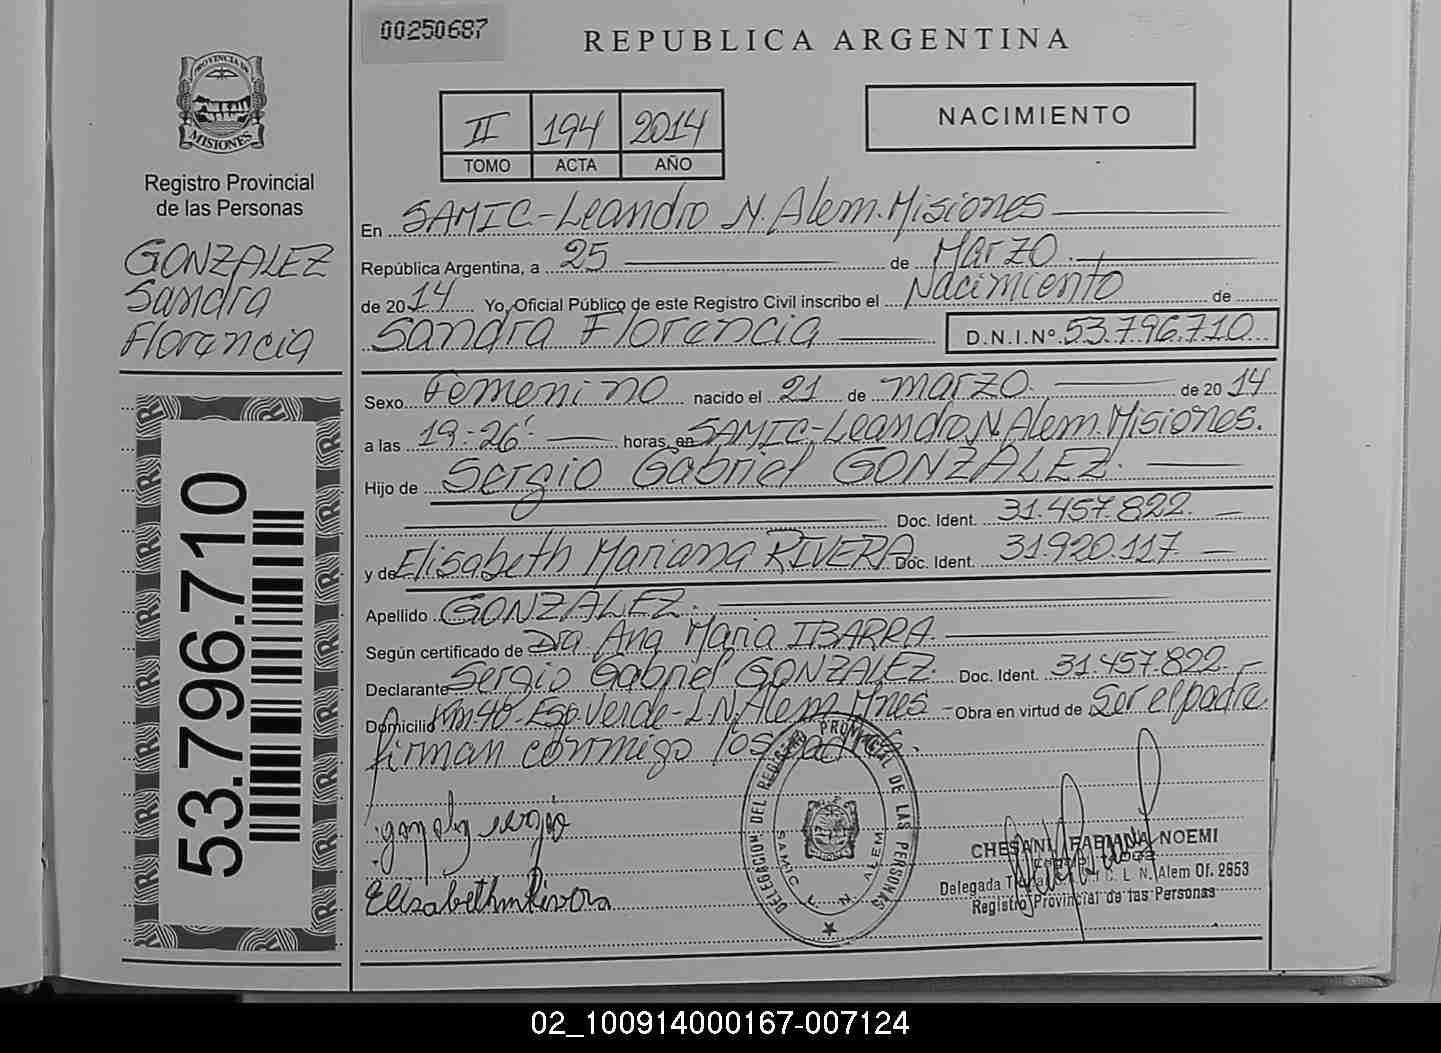 00250687
REPUBLICA ARGENTINA
PROVINCIA DE
MISIONES
Registro Provincial
de las Personas
GONZALEZ
Sandra
Florencia
II 194 2014
TOMO ACTA AÑO
NACIMIENTO
En SAMIC-Leandro N. Alem. Misiones
República Argentina, a 25 de Marzo.
de 2014 Yo, Oficial Público de este Registro Civil inscribo el Nacimiento de
Sandra Florencia D.N.I.Nº 53.796.710
Sexo Femenino nacido el 21 de marzo. de 2014
a las 19:26' horas, en SAMIC-Leandro N. Alem. Misiones.
Hijo de Sergio Gabriel GONZALEZ.
Doc. Ident. 31.457.822.
y de Elisabeth Mariana RIVERA Doc. Ident. 31.920.117
Apellido GONZALEZ.
Según certificado de Dra Ana Maria IBARRA.
Declarante Sergio Gabriel GONZALEZ. Doc. Ident. 31.457.822
Domicilio Km 40-Esp. Verde-L.N. Alem Mnes Obra en virtud de Ser el padre.
firman conmigo los padres.
53.796.710
DELEGACION DEL REGISTRO PROVINCIAL DE LAS PERSONAS
SAMIC L. N. ALEM
gonzalez sergio
Elisabeth m Rivera
CHESANI FABIANA NOEMI
Delegada L. N. Alem Of. 2653
Registro Provincial de las Personas
02_100914000167-007124